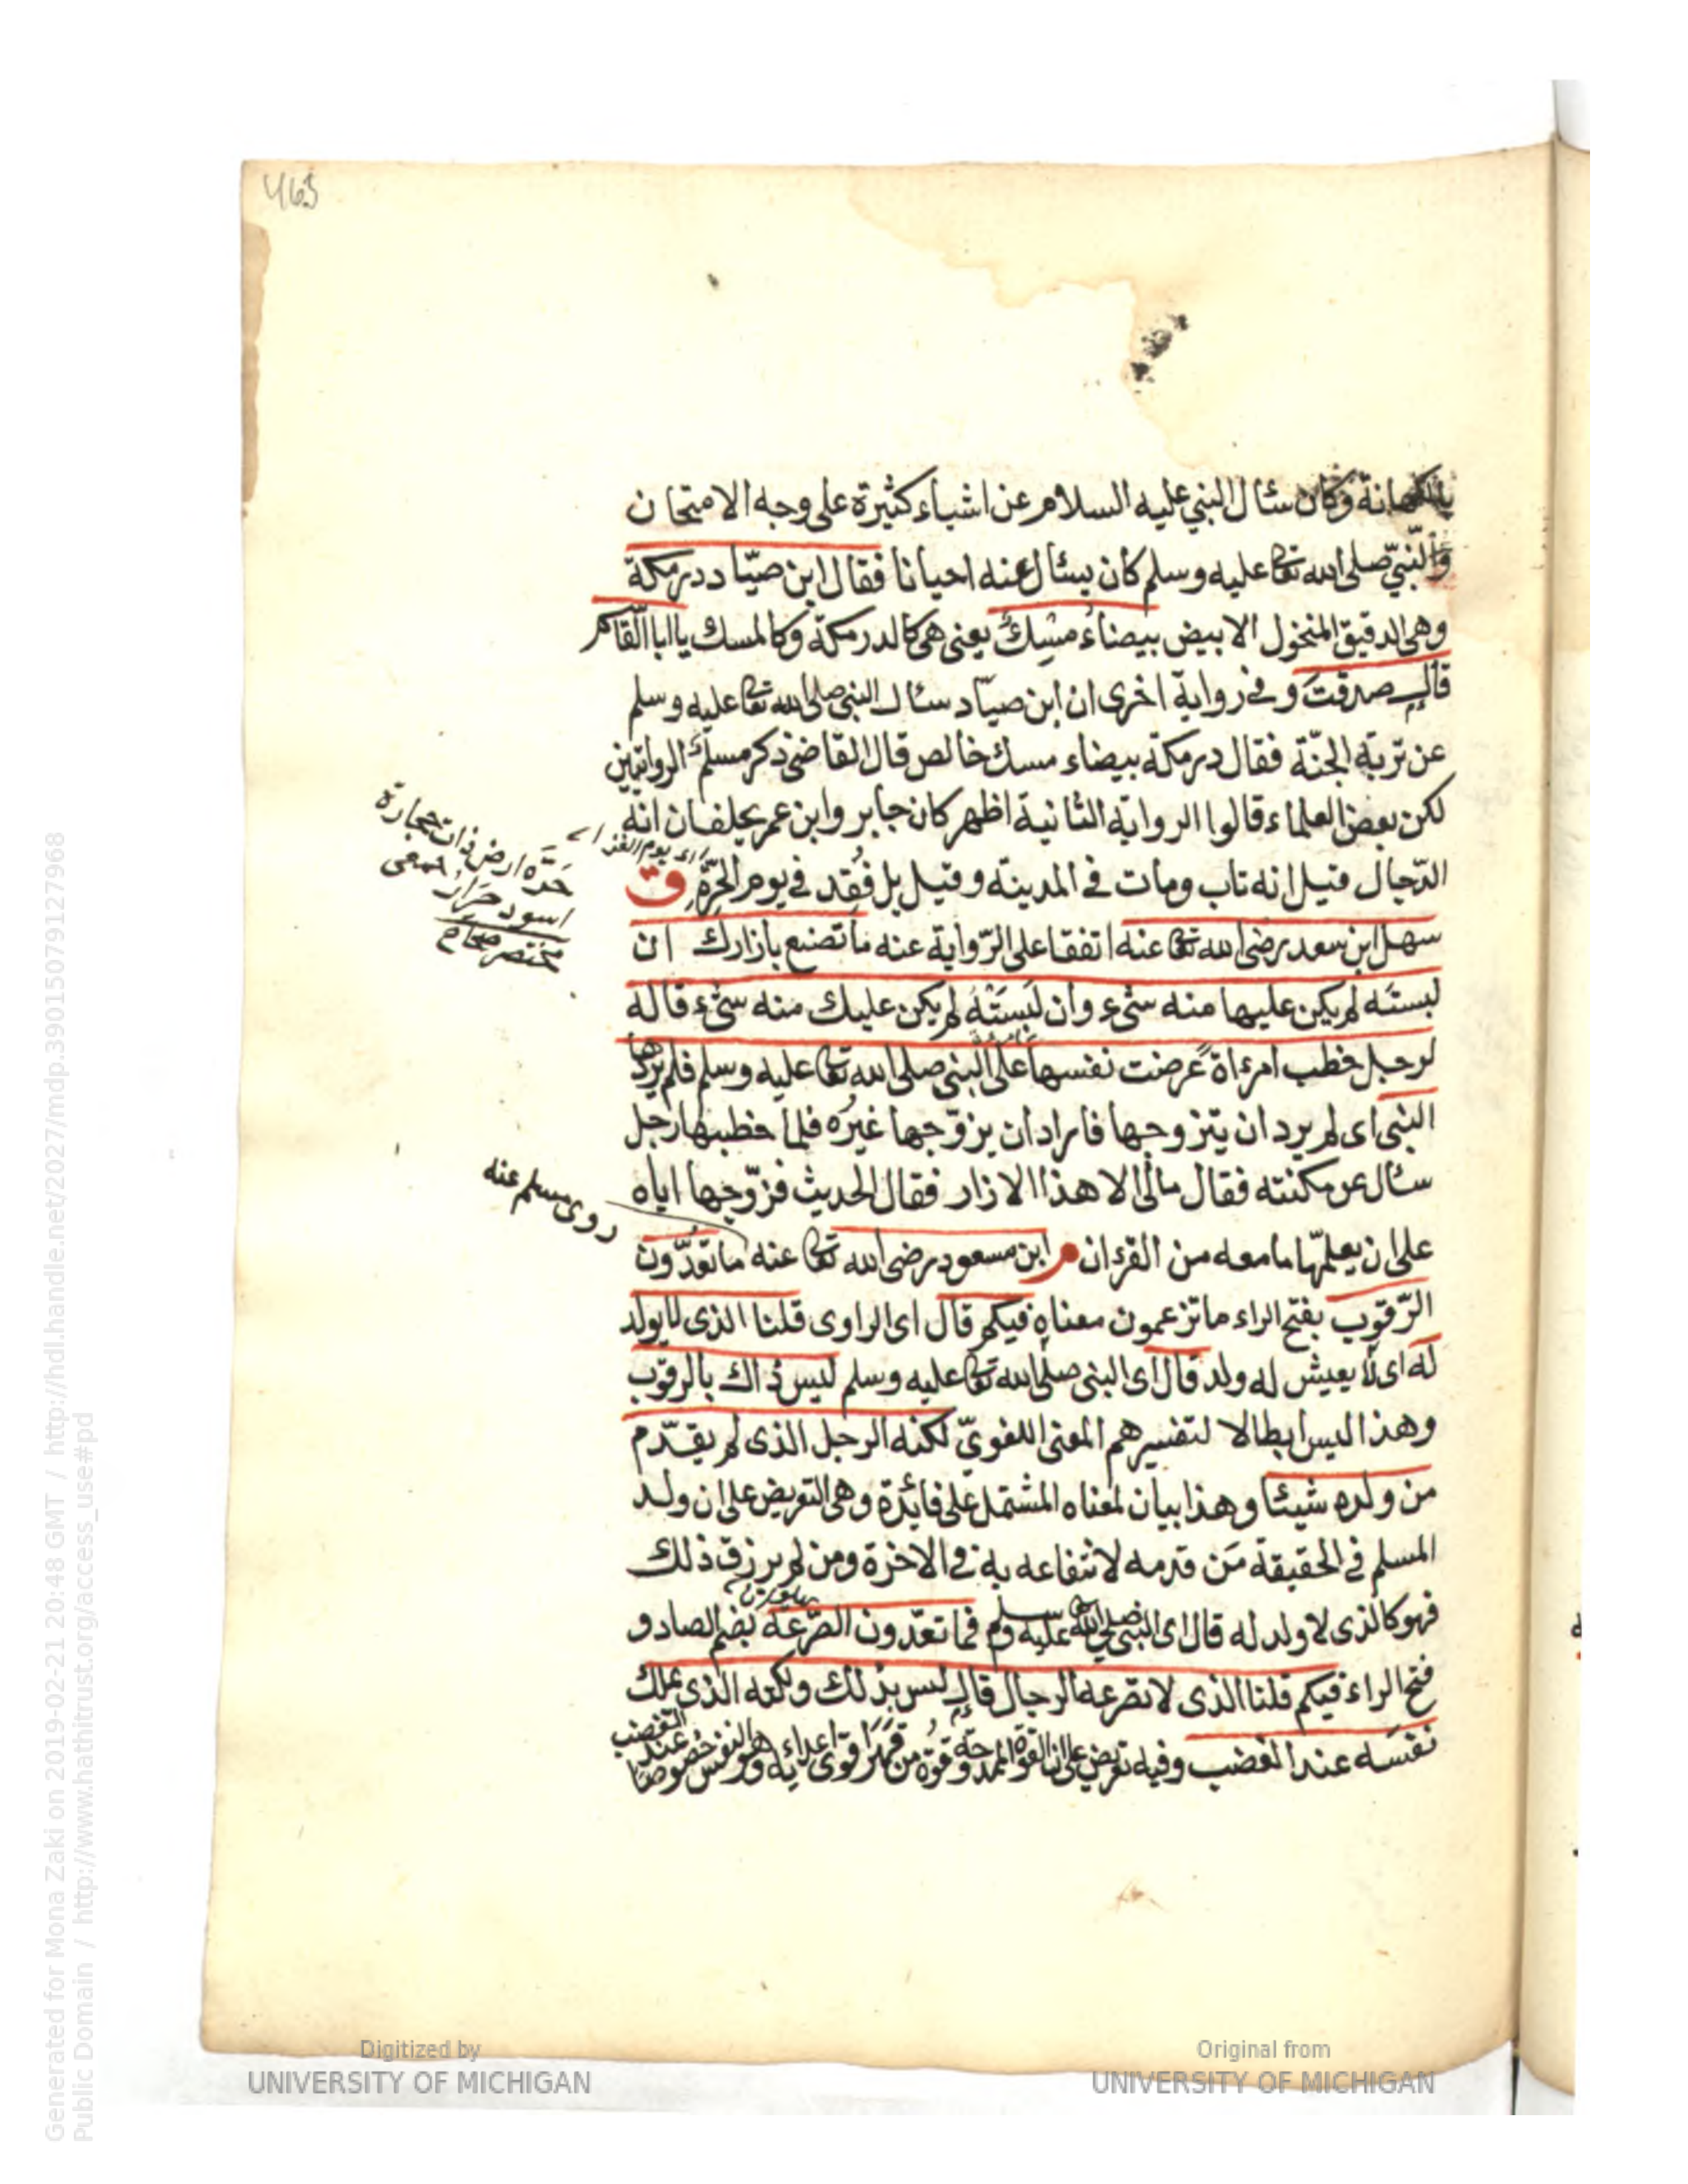 463
بالكهانة وكان سئال النبي عليه السلام عن اشياء كثيرة على وجه الامتحان
والنبيّ صلى الله تعا عليه وسلم كان يسئال عنه احيانا فقال ابن صيّاد درمكة
وهى الدقيق المنخول الابيض بيضاءُ مسكٌ يعنى هى كالدرمكة وكالمسك يا ابا القاسم
قال صدقتَ و فى رواية اخرى ان ابن صيّاد سئال النبى صلى الله تعا عليه وسلم
عن تربة الجنّة فقال درمكة بيضاء مسك خالص قال القاضى ذكر مسلم الروايتين
لكن بعض العلماء قالوا الرواية الثانية اظهر كان جابر وابن عمر يحلفان انه
الدّجال قيل انه تاب ومات فى المدينة وقيل بل فُقد فى يوم الحَرَّةِ ق
سهل ابن سعد رضى الله تعا عنه اتفقا على الرّواية عنه ما تصنع بازارك ان
لبستَه لم يكن عليها منه شىء وان لَبِسَتْهُ لم يكن عليك منه شىء قاله
لرجل خطب امرءاة عرضت نفسها على النبى صلى الله تعا عليه وسلم فلم يردها
النبى اى لم يرد ان يتزوجها فاراد ان يزوّجها غيرَه فلما خطبها رجل
سئال عن مكنته فقال مالى الا هذا الازار فقال الحديث فزوّجها اياه
على ان يعلمّها ما معه من القرءان م ابن مسعود رضى الله تعا عنه ما تعُدّون
الرّقوب بفتح الراء ما تزعمون معناه فيكم قال اى الراوى قلنا الذى لا يولد
له اى لا يعيش له ولد قال اى النبى صلى الله تعا عليه وسلم ليس ذاك بالرقوب
وهذا ليس ابطالا لتفسيرهم المعنى اللغوىّ لكنه الرجل الذى لم يقدّم
من ولده شيئا وهذا بيان لمعناه المشتمل على فائدة وهى التعريض على ان ولد
المسلم فى الحقيقة مَن قدمه لانتفاعه به فى الاخرة ومن لم يرزق ذلك
فهو كالذى لا ولد له قال اى النبى صلى الله عليه وسلم فما تعدّون الصّرعة بضم الصاد و
فتح الراء فيكم قلنا الذى لا تصرعه الرجال قال ليس بذلك ولكنه الذى يملك
نفسَه عند الغضب وفيه تعريض على ان القوة الممدوحة قوّة من قهر اقوى اعدائه وهو النفس خصوصًا
عند الغضب
حَرَّه ارض ذات حجارة
اسود حَرار جمعى
مختصر صحاح
روى مسلم عنه
Generated for Mona Zaki on 2019-02-21 20:48 GMT / http://hdl.handle.net/2027/mdp.39015079127968
Public Domain / http://www.hathitrust.org/access_use#pd
Digitized by
UNIVERSITY OF MICHIGAN
Original from
UNIVERSITY OF MICHIGAN